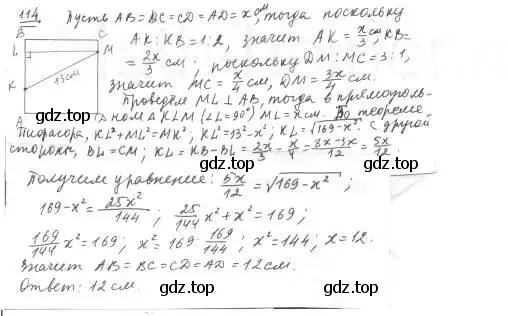 114. Пусть AB=BC=CD=AD=x см, тогда поскольку
B C AK:KB=1:2, значит AK=x/3 см, KB=
L M =2x/3 см; поскольку DM:MC=3:1,
K 13см значит MC=x/4 см, DM=3x/4 см.
Проведём ML⊥AB, тогда в прямоуголь-
A ном △KLM (∠L=90°) ML=xсм. По теореме
Пифагора, KL²+ML²=MK²; KL²=13²-x²; KL=√169-x². С другой
стороны, BL=CM; KL=KB-BL=2x/3-x/4=8x-3x/12=5x/12.
Получим уравнение: 5x/12=√169-x²;
169-x²=25x²/144; 25/144x²+x²=169;
169/144x²=169; x²=169·169/144; x²=144; x=12.
Значит AB=BC=CD=AD=12см.
Ответ: 12см.
gdz.top gdz.top
gdz.top gdz.top
gdz.top gdz.top
gdz.top gdz.top